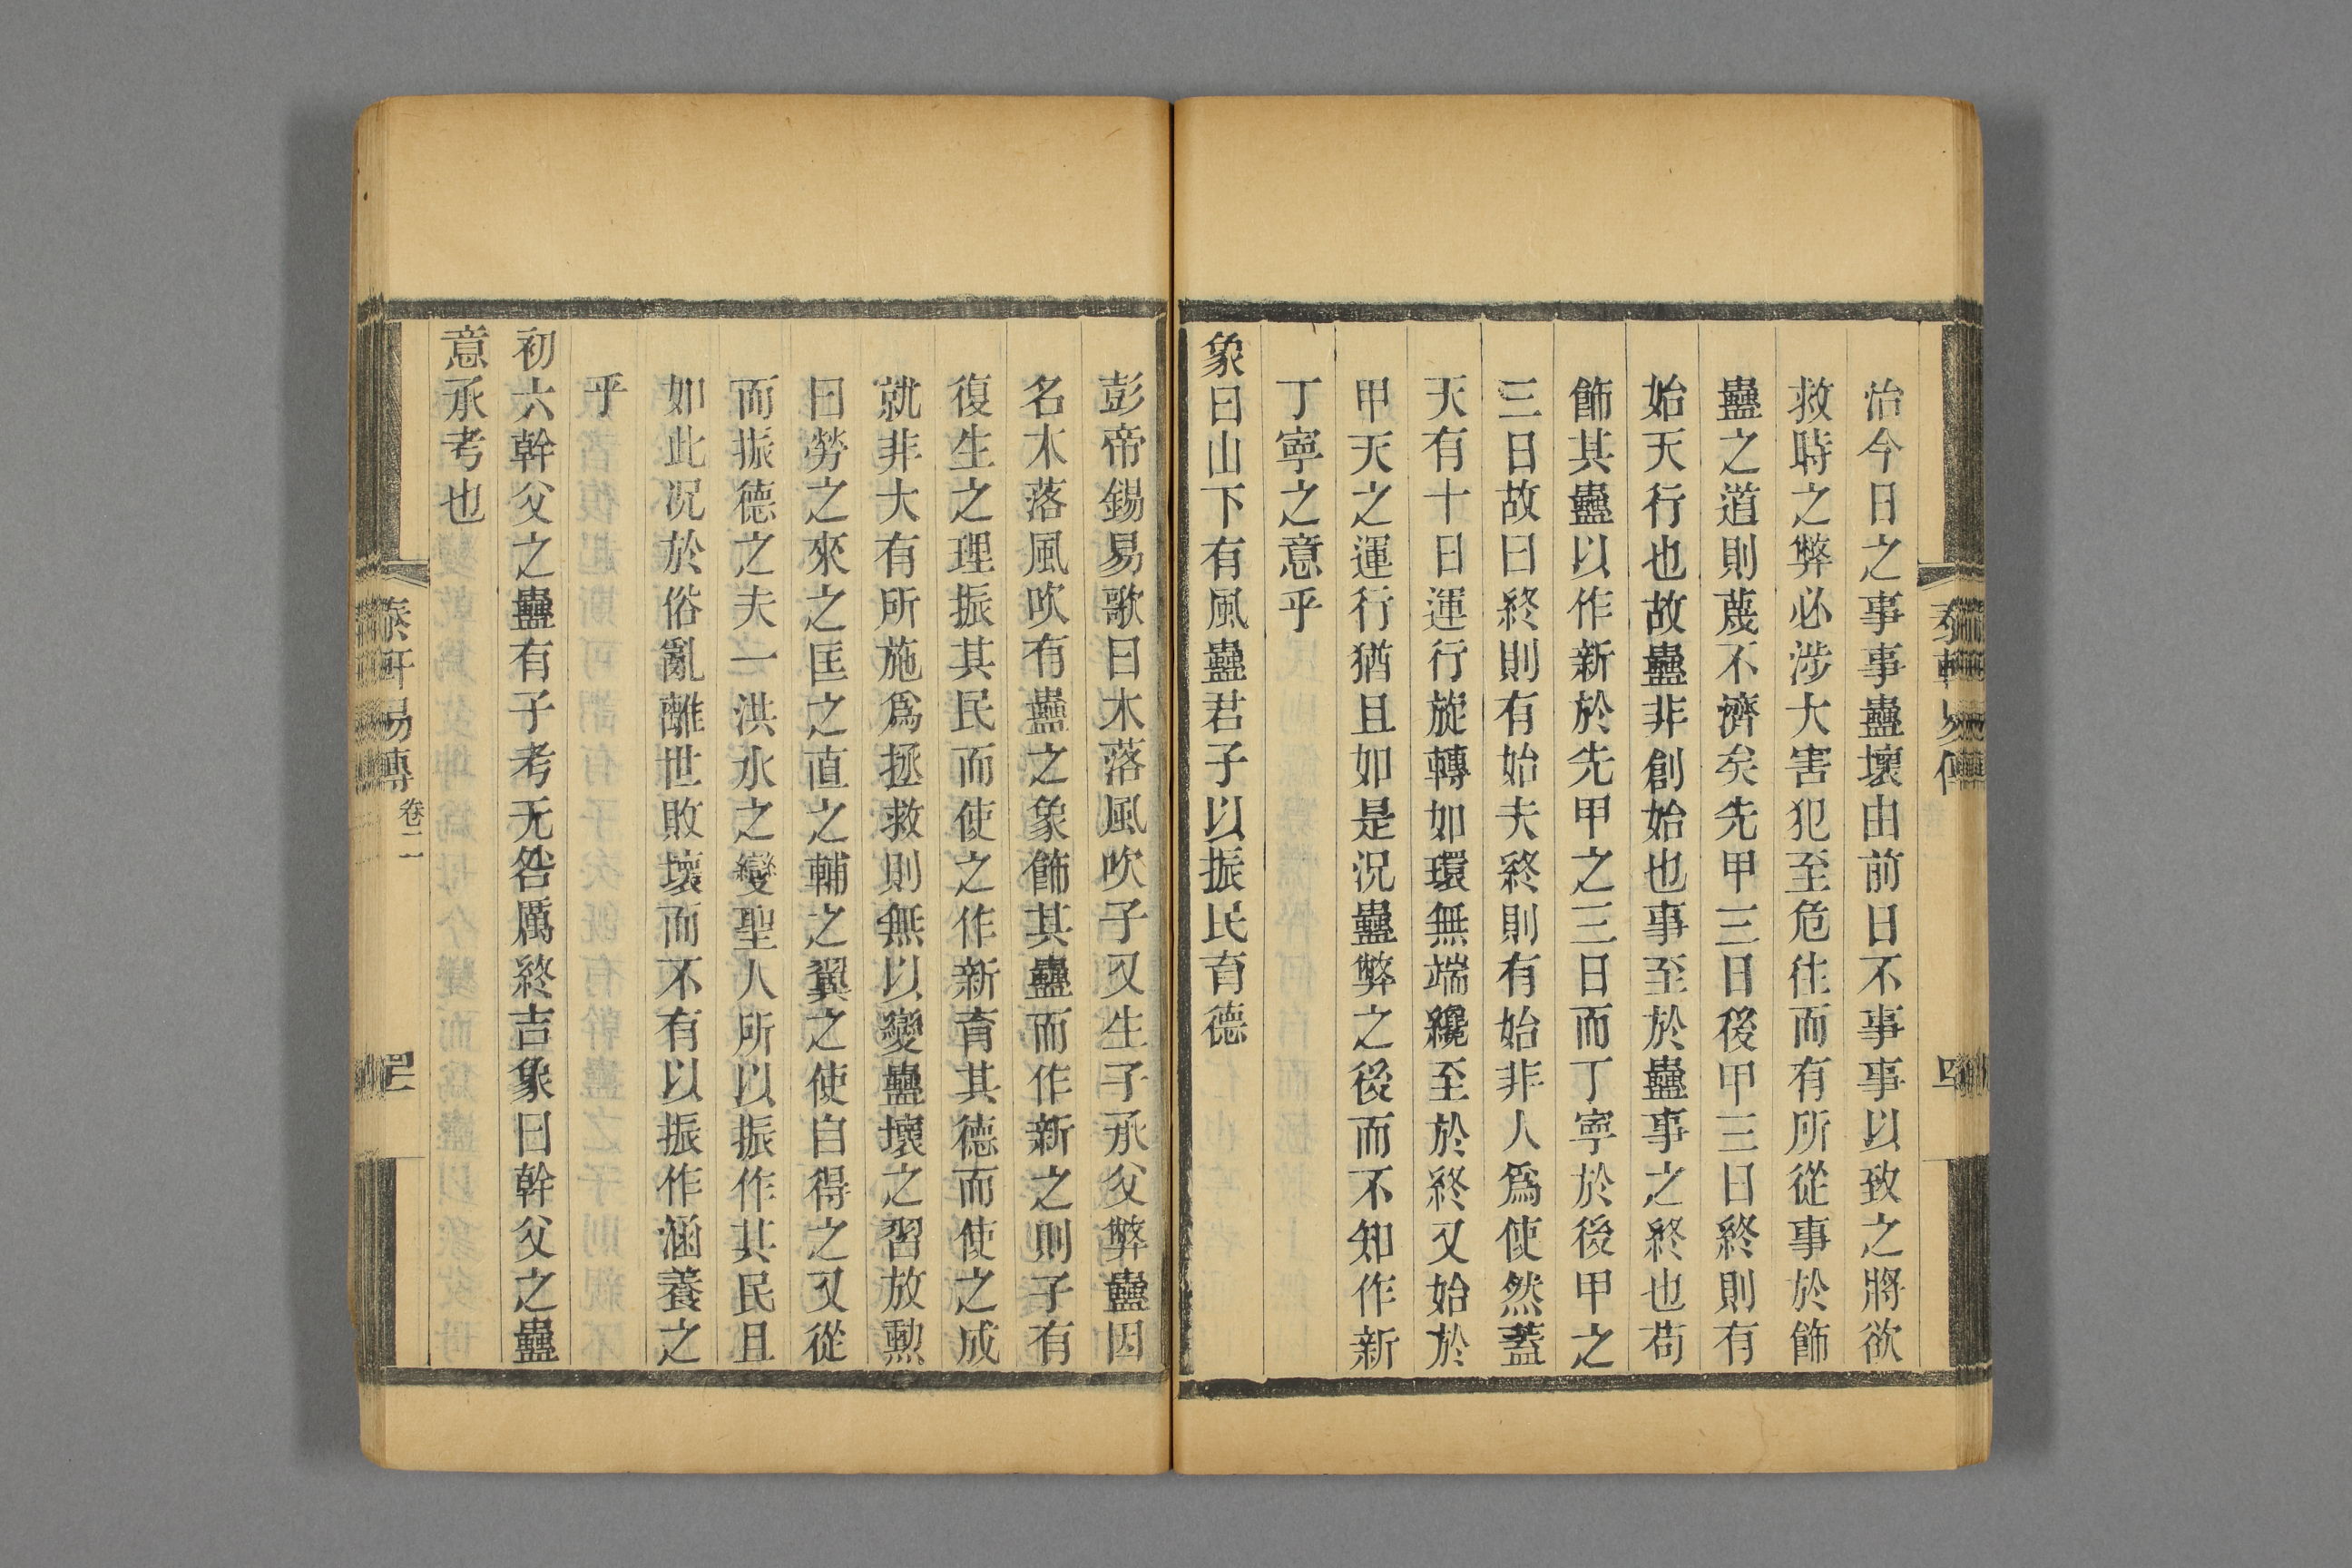 治今日之事事蠱壞由前日不事事以致之將欲
救時之弊必涉大害犯至危往而有所從事於飾
蠱之道則蔑不濟矣先甲三日後甲三日終則有
始天行也故蠱非創始也事至於蠱事之終也苟
飾其蠱以作新於先甲之三日而丁寧於後甲之
三日故曰終則有始夫終則有始非人爲使然蓋
天有十日運行旋轉如環無端纔至於終又始於
甲天之運行猶且如是況蠱弊之後而不知作新
丁寧之意乎
象曰山下有風蠱君子以振民育德
彭帝錫易歌曰木落風吹子又生子承父弊蠱因
名木落風吹有蠱之象飾其蠱而作新之則子有
復生之理振其民而使之作新育其德而使之成
就非大有所施爲拯救則無以變蠱壞之習放勲
曰勞之來之匡之直之輔之翼之使自得之又從
而振德之夫一洪水之變聖人所以振作其民且
如此况於俗亂離世敗壞而不有以振作涵養之
乎
初六幹父之蠱有子考无咎厲終吉象曰幹父之蠱
意承考也
易傳
卷二